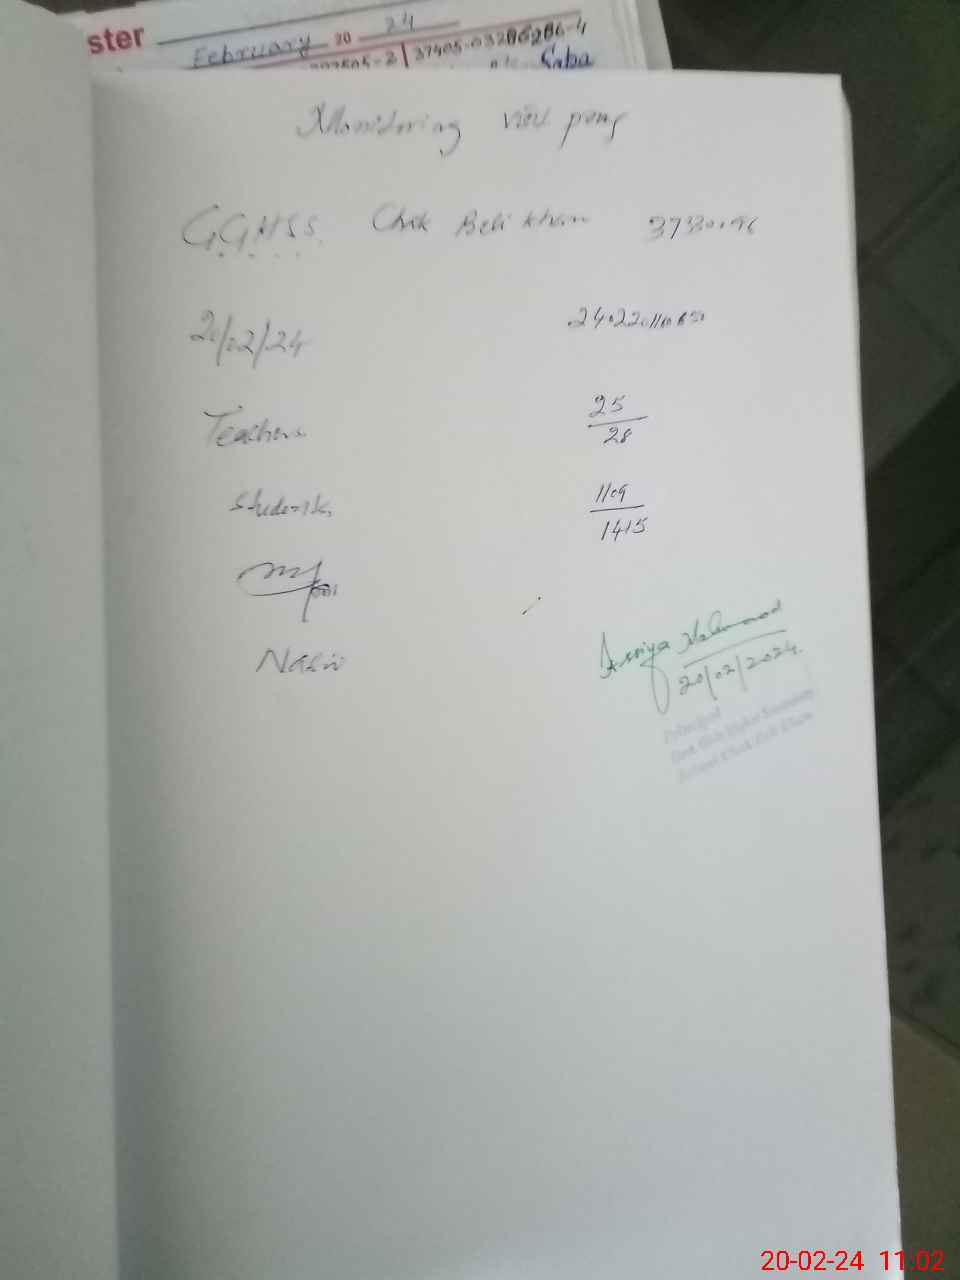 ster February 20 24
37405-03286286-4
Saba
Monitoring visit
G.G.H.S.S. Chak Beli Khan 37330196
20/02/24
Teachers 25/28
Students 1109/1415
Nasir
Assiya Mahmood
20/02/2024
Principal
Govt Girls Higher Secondary
School Chak Beli Khan
20-02-24 11:02